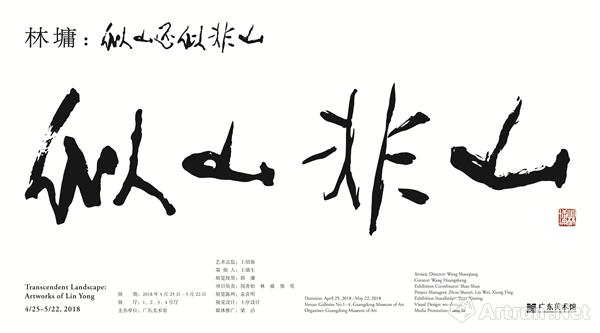 林墉：似山还似非山
似山非山
Transcendent Landscape:
Artworks of Lin Yong
4/25–5/22, 2018
展 期：2018年4月25日-5月22日
展 厅：1、2、3、4号厅
主办单位：广东美术馆
艺术总监：王绍强
策 展 人：王璜生
展览统筹：邵 珊
展览设计：王序设计
媒体推广：梁 洁
Duration: April 25, 2018–May 22, 2018
Venue: Galleries No.1–4, Guangdong Museum of Art
Organizer: Guangdong Museum of Art
Artistic Director: Wang Shaoqiang
Curator: Wang Huangsheng
Exhibition Coordinator: Shao Shan
Project Managers: Zhou Shanyi, Lin Wei, Xiong Ying
Exhibition Installation:
Visual Design:
Media Promotion:
广东美术馆
Artron.Net